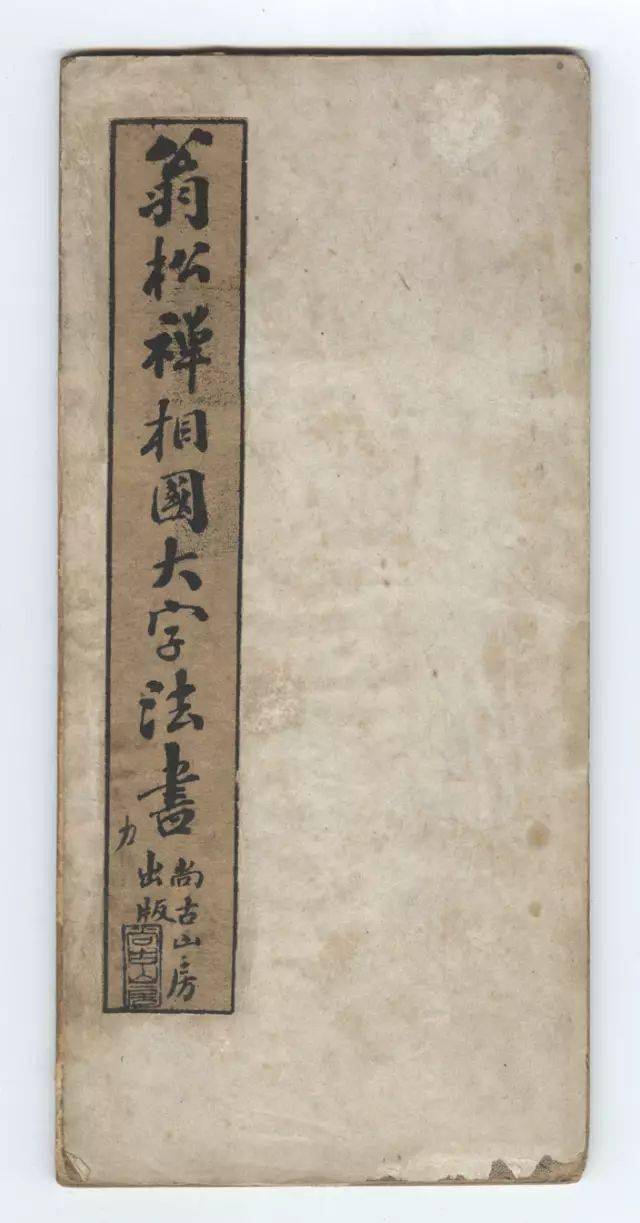 翁松禪相國大字法書
尚古山房
出版
尚古山房
力